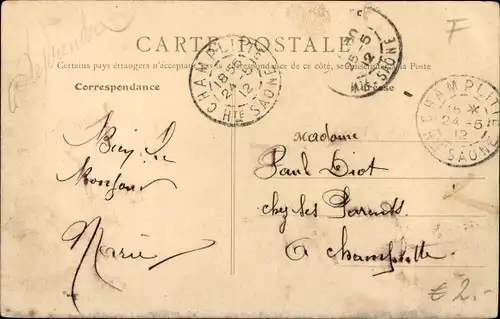 F
CARTE POSTALE
Certains pays étrangers n'acceptent pas la correspondance de ce côté, se renseigner à la Poste
Correspondance
Adresse
CHAMPLITTE
1855
24 -5
12
HTE SAÔNE
15 -5
12
SAÔNE
CHAMPLITTE
16 *
24 -5
12
HTE SAÔNE
Madame
Paul Diot
chez ses Parents
à Champlitte
Bien Le
Bonjour
Marie
€ 2.-